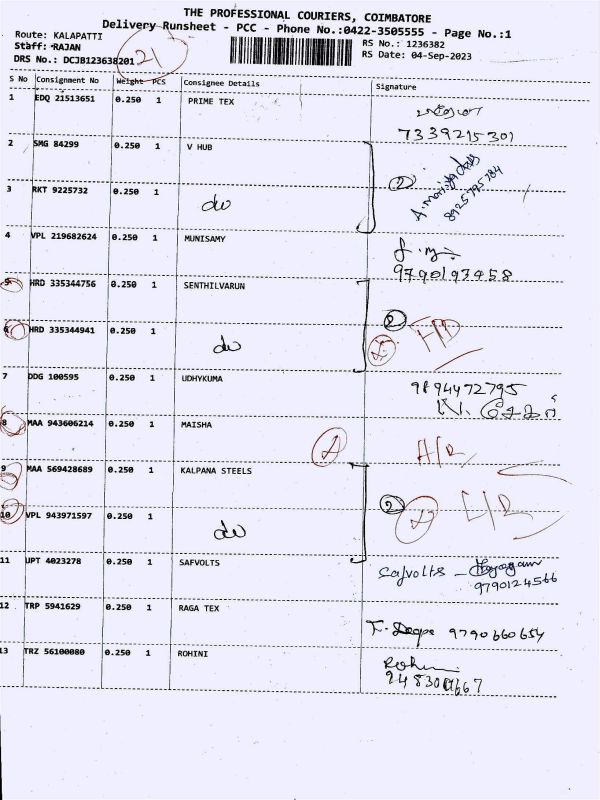 THE PROFESSIONAL COURIERS, COIMBATORE
Delivery Runsheet - PCC - Phone No.:0422-3505555 - Page No.:1
Route: KALAPATTI
Staff: RAJAN
DRS No.: DCJB123638201
21
RS No.: 1236382
RS Date: 04-Sep-2023
S No Consignment No Weight PCS Consignee Details Signature
1 EDQ 21513651 0.250 1 PRIME TEX
7339215301
2 SMG 84299 0.250 1 V HUB
2
8925795784
3 RKT 9225732 0.250 1 do
4 VPL 219682624 0.250 1 MUNISAMY
9790197458
5 HRD 335344756 0.250 1 SENTHILVARUN
2
6 HRD 335344941 0.250 1 do
7 DDG 100595 0.250 1 UDHYKUMA
9894472795
8 MAA 943606214 0.250 1 MAISHA
9 MAA 569428689 0.250 1 KALPANA STEELS
2
10 VPL 943971597 0.250 1 do
11 UPT 4023278 0.250 1 SAFVOLTS
Safvolts -
9790124566
12 TRP 5941629 0.250 1 RAGA TEX
9790660654
13 TRZ 56100080 0.250 1 ROHINI
Rohini